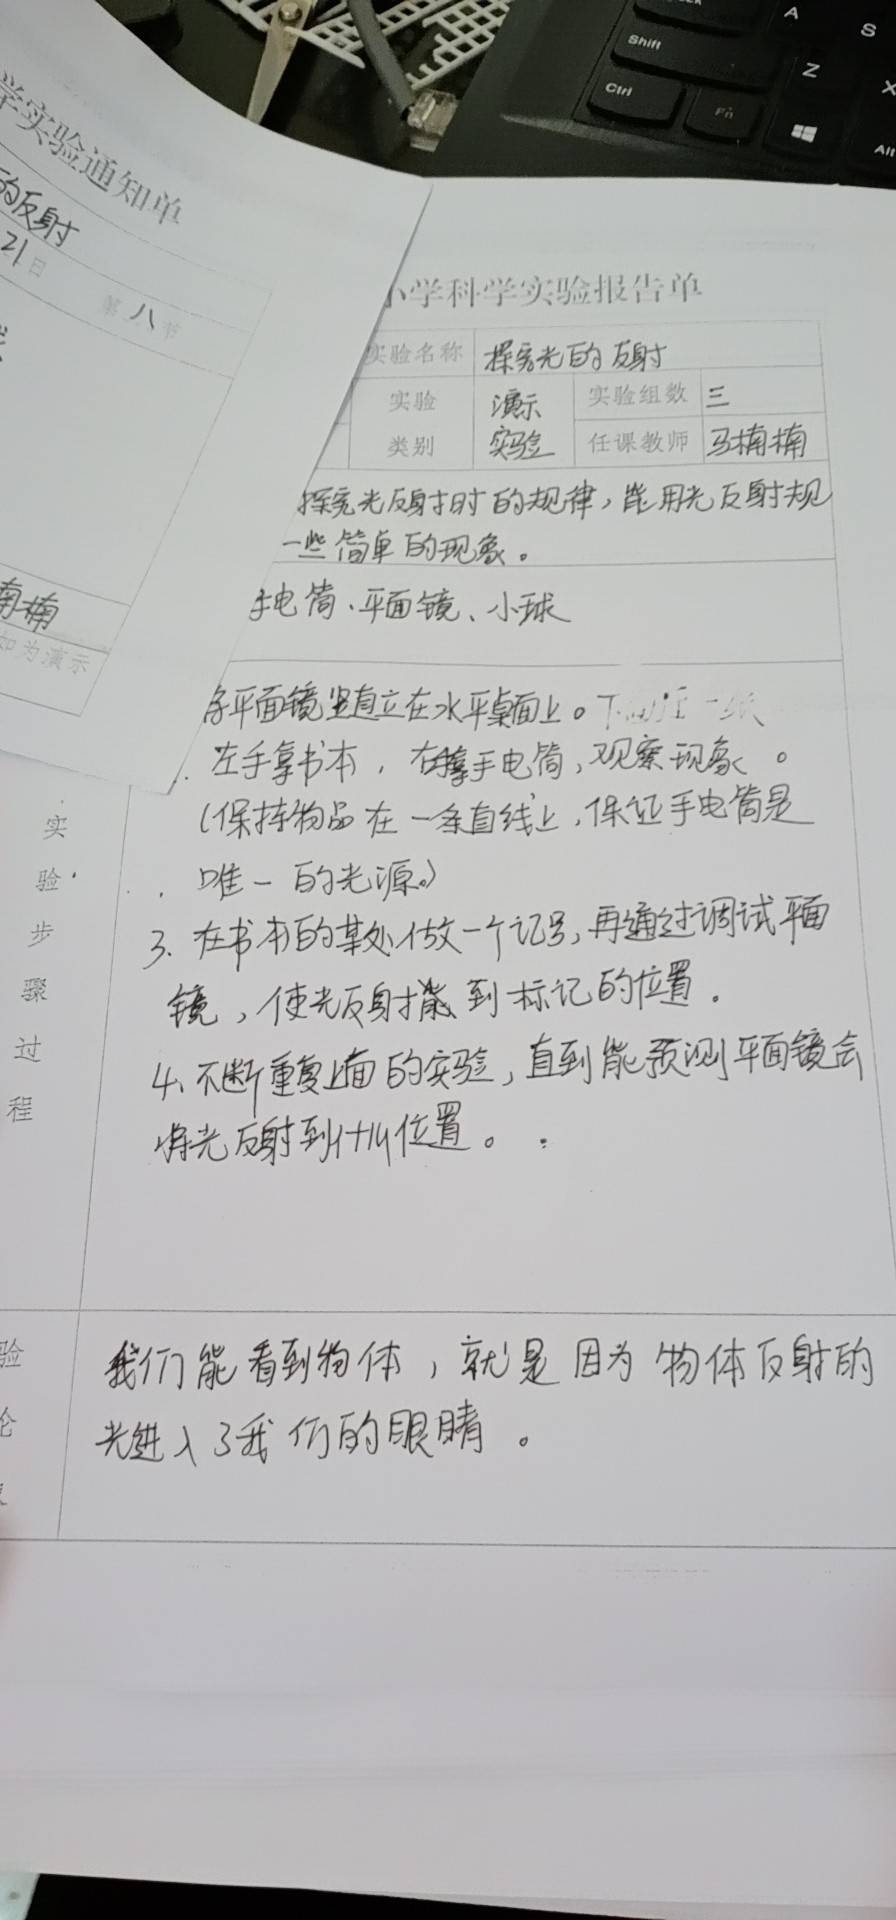 学实验通知单
的反射
21日
第八节
楠楠
如为演示
小学科学实验报告单
实验名称 探究光的反射
实验类别 演示实验
实验组数 三
任课教师 马楠楠
探究光反射时的规律，能用光反射规
一些简单的现象。
手电筒、平面镜、小球
实验步骤过程
将平面镜竖直立在水平桌面上。
左手拿书本，右手拿手电筒，观察现象。
（保持物品在一条直线上，保证手电筒是
唯一的光源。）
3、在书本的某处做一个记号，再通过调试平面
镜，使光反射能到标记的位置。
4、不断重复上面的实验，直到能预测平面镜会
将光反射到什么位置。
验
论
我们能看到物体，就是因为物体反射的
光进入了我们的眼睛。
Shift
Ctrl
Fn
Alt
A
S
Z
X